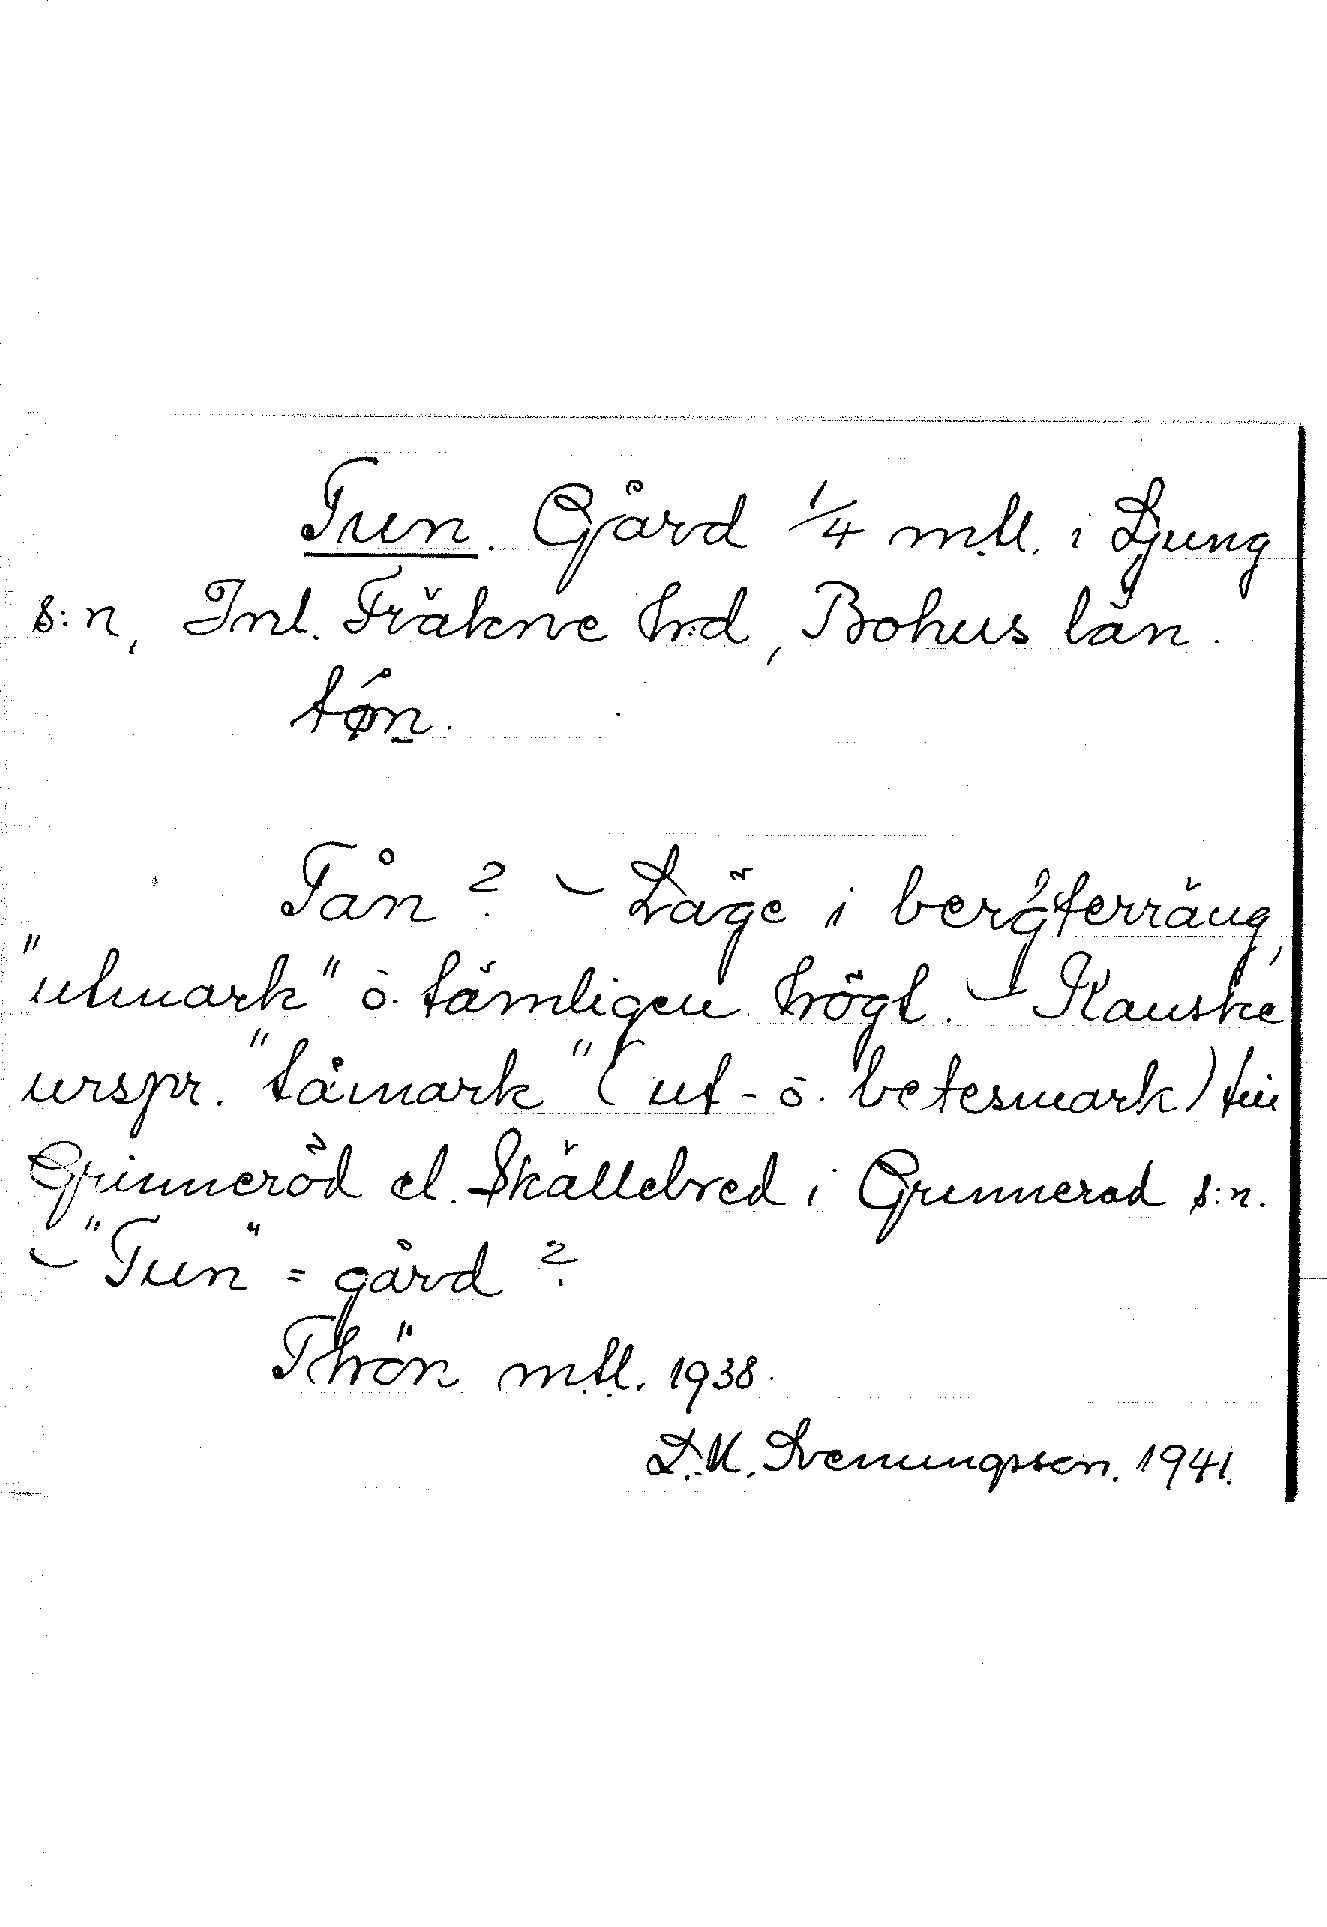 Tun. Gård 1/4 mtl. i Ljung
s:n, Inl. Fräkne hrd, Bohus län.
tøn.
Tån? – Läge i bergterräng,
"utmark" o. tämligen högt. – Kanske
urspr. "tåmark" (ut- o. betesmark) till
Grinneröd el. Skällebred i Grinnerod s:n.
– "Tun" = gård?
Thön mtl. 1938.
D.K. Svenungsson. 1941.